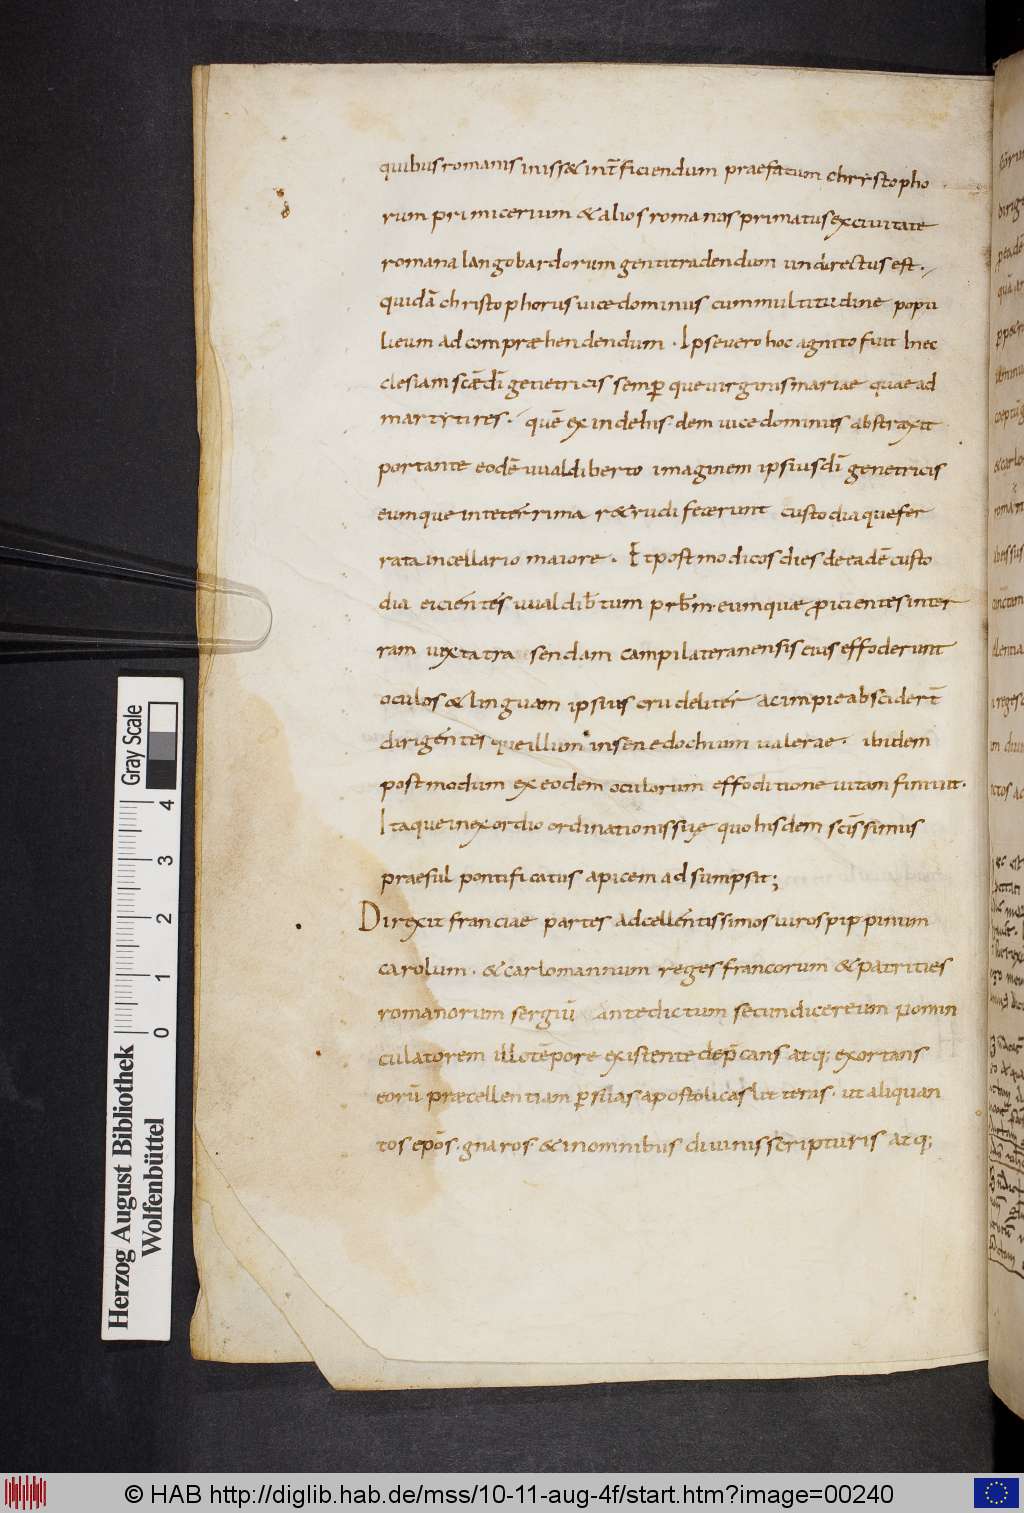 quibus romanis inisset int̄ficiendum praefatum chrystopho
rum primicerium & alios romanos primatus ex civitate
romana langobardorum genti tradendum .. directus est.
quidā christophorus vicedominus cum multitudine popu
lieum ad compræhendendum. Ipse vero hoc agnito fuit Inec
clesiam scædī genetricis semp̄ que virginis mariae quae ad
martyres. quē exinde hisdem vicedominus abstraxit
portante eodē uualdiberto imaginem ipsius dī genetricis
eumque in teterrima r&rudi fecerunt custodia que fer
rata in cellario maiore. Et post modicos dies de eadē custo
dia eicientes uualdib̄tum prb̄m. eumquæ p̱icientes inter
ram iuxta tra sendam campi lateranensis eius effoderunt
oculos & linguam ipsius crudeliter ac impie abscidert̄
dirigentes que illum in senedochium valerae. ibidem
postmodum ex eodem oculorum effoditione vitam finiuit.
Itaque in exordio ordinationis suę quo hisdem scīssimus
praesul pontificatus apicem adsumpsit;
Direxit franciae partes ad cellentissimos viros pippinum
carolum. & carlomannum reges francorum & patrities
romanorum sergiū antedictum secundicereum nomin
culatorem illo tēpore existente dep̄cans atq; exortans
eorū præcellentiam p̱ suas apostolicas litteras. ut aliquan
tos ep̄os. gnaros & in omnibus divinis scripturis atq;
Herzog August Bibliothek
Wolfenbüttel
Gray Scale
0 1 2 3 4
© HAB http://diglib.hab.de/mss/10-11-aug-4f/start.htm?image=00240